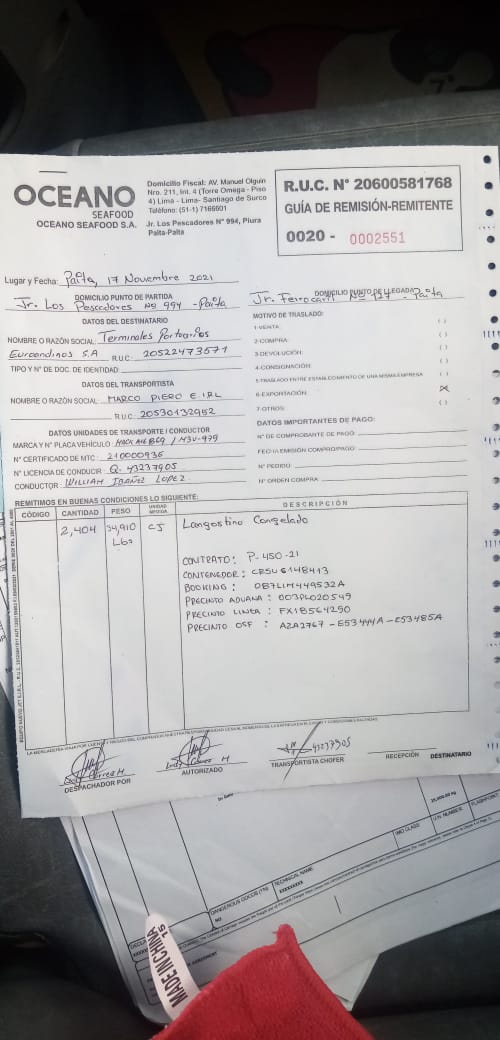 OCEANO
SEAFOOD
OCEANO SEAFOOD S.A.
Domicilio Fiscal: AV. Manuel Olguin
Nro. 211, Int. 4 (Torre Omega - Piso
4) Lima - Lima- Santiago de Surco
Teléfono: (51-1) 7166601
Jr. Los Pescadores N° 994, Piura
Paita-Paita
R.U.C. N° 20600581768
GUÍA DE REMISIÓN-REMITENTE
0020 - 0002551
Lugar y Fecha: Paita, 17 Noviembre 2021
DOMICILIO PUNTO DE PARTIDA
Jr. Los Pescadores No 994 - Paita
DOMICILIO PUNTO DE LLEGADA
Jr. Ferrocarril No 127 - Paita
DATOS DEL DESTINATARIO
NOMBRE O RAZÓN SOCIAL: Terminales Portuarios
Euroandinos S.A RUC: 20522473571
TIPO Y N° DE DOC. DE IDENTIDAD:
DATOS DEL TRANSPORTISTA
NOMBRE O RAZÓN SOCIAL: MARCO PIERO E.IRL
RUC: 20530132952
DATOS UNIDADES DE TRANSPORTE / CONDUCTOR
MARCA Y N° PLACA VEHÍCULO:
N° CERTIFICADO DE MTC: 210000936
N° LICENCIA DE CONDUCIR: Q-43237905
CONDUCTOR: WILLIAM IBAÑEZ LOPEZ
MOTIVO DE TRASLADO:
1-VENTA: ( )
2-COMPRA: ( )
3-DEVOLUCIÓN: ( )
4-CONSIGNACIÓN: ( )
5-TRASLADO ENTRE ESTABLECIMIENTO DE UNA MISMA EMPRESA ( )
6-EXPORTACIÓN: (X)
7-OTROS: ( )
DATOS IMPORTANTES DE PAGO:
N° DE COMPROBANTE DE PAGO:
FECHA EMISIÓN COMP/PAGO:
N° PEDIDO:
N° ORDEN COMPRA:
REMITIMOS EN BUENAS CONDICIONES LO SIGUIENTE:
CÓDIGO CANTIDAD PESO UNIDAD MEDIDA DESCRIPCIÓN
2,404 34,910 CJ Langostino Congelado
Lbs
CONTRATO: P-450-21
CONTENEDOR: CRSU6148413
BOOKING: 087LIM449532A
PRECINTO ADUANA: 003PL020549
PRECINTO LINEA: FX18564290
PRECINTO OSF: A2A2767 - E53444A - E53485A
DESPACHADOR POR
AUTORIZADO
43237905
TRANSPORTISTA CHOFER
RECEPCIÓN
DESTINATARIO
IMO CLASS
U.N. NUMBER
FLASHPOINT
DANGEROUS GOODS
TECHNICAL NAME
XXXXXXXX
NO
MADE IN CHINA
15